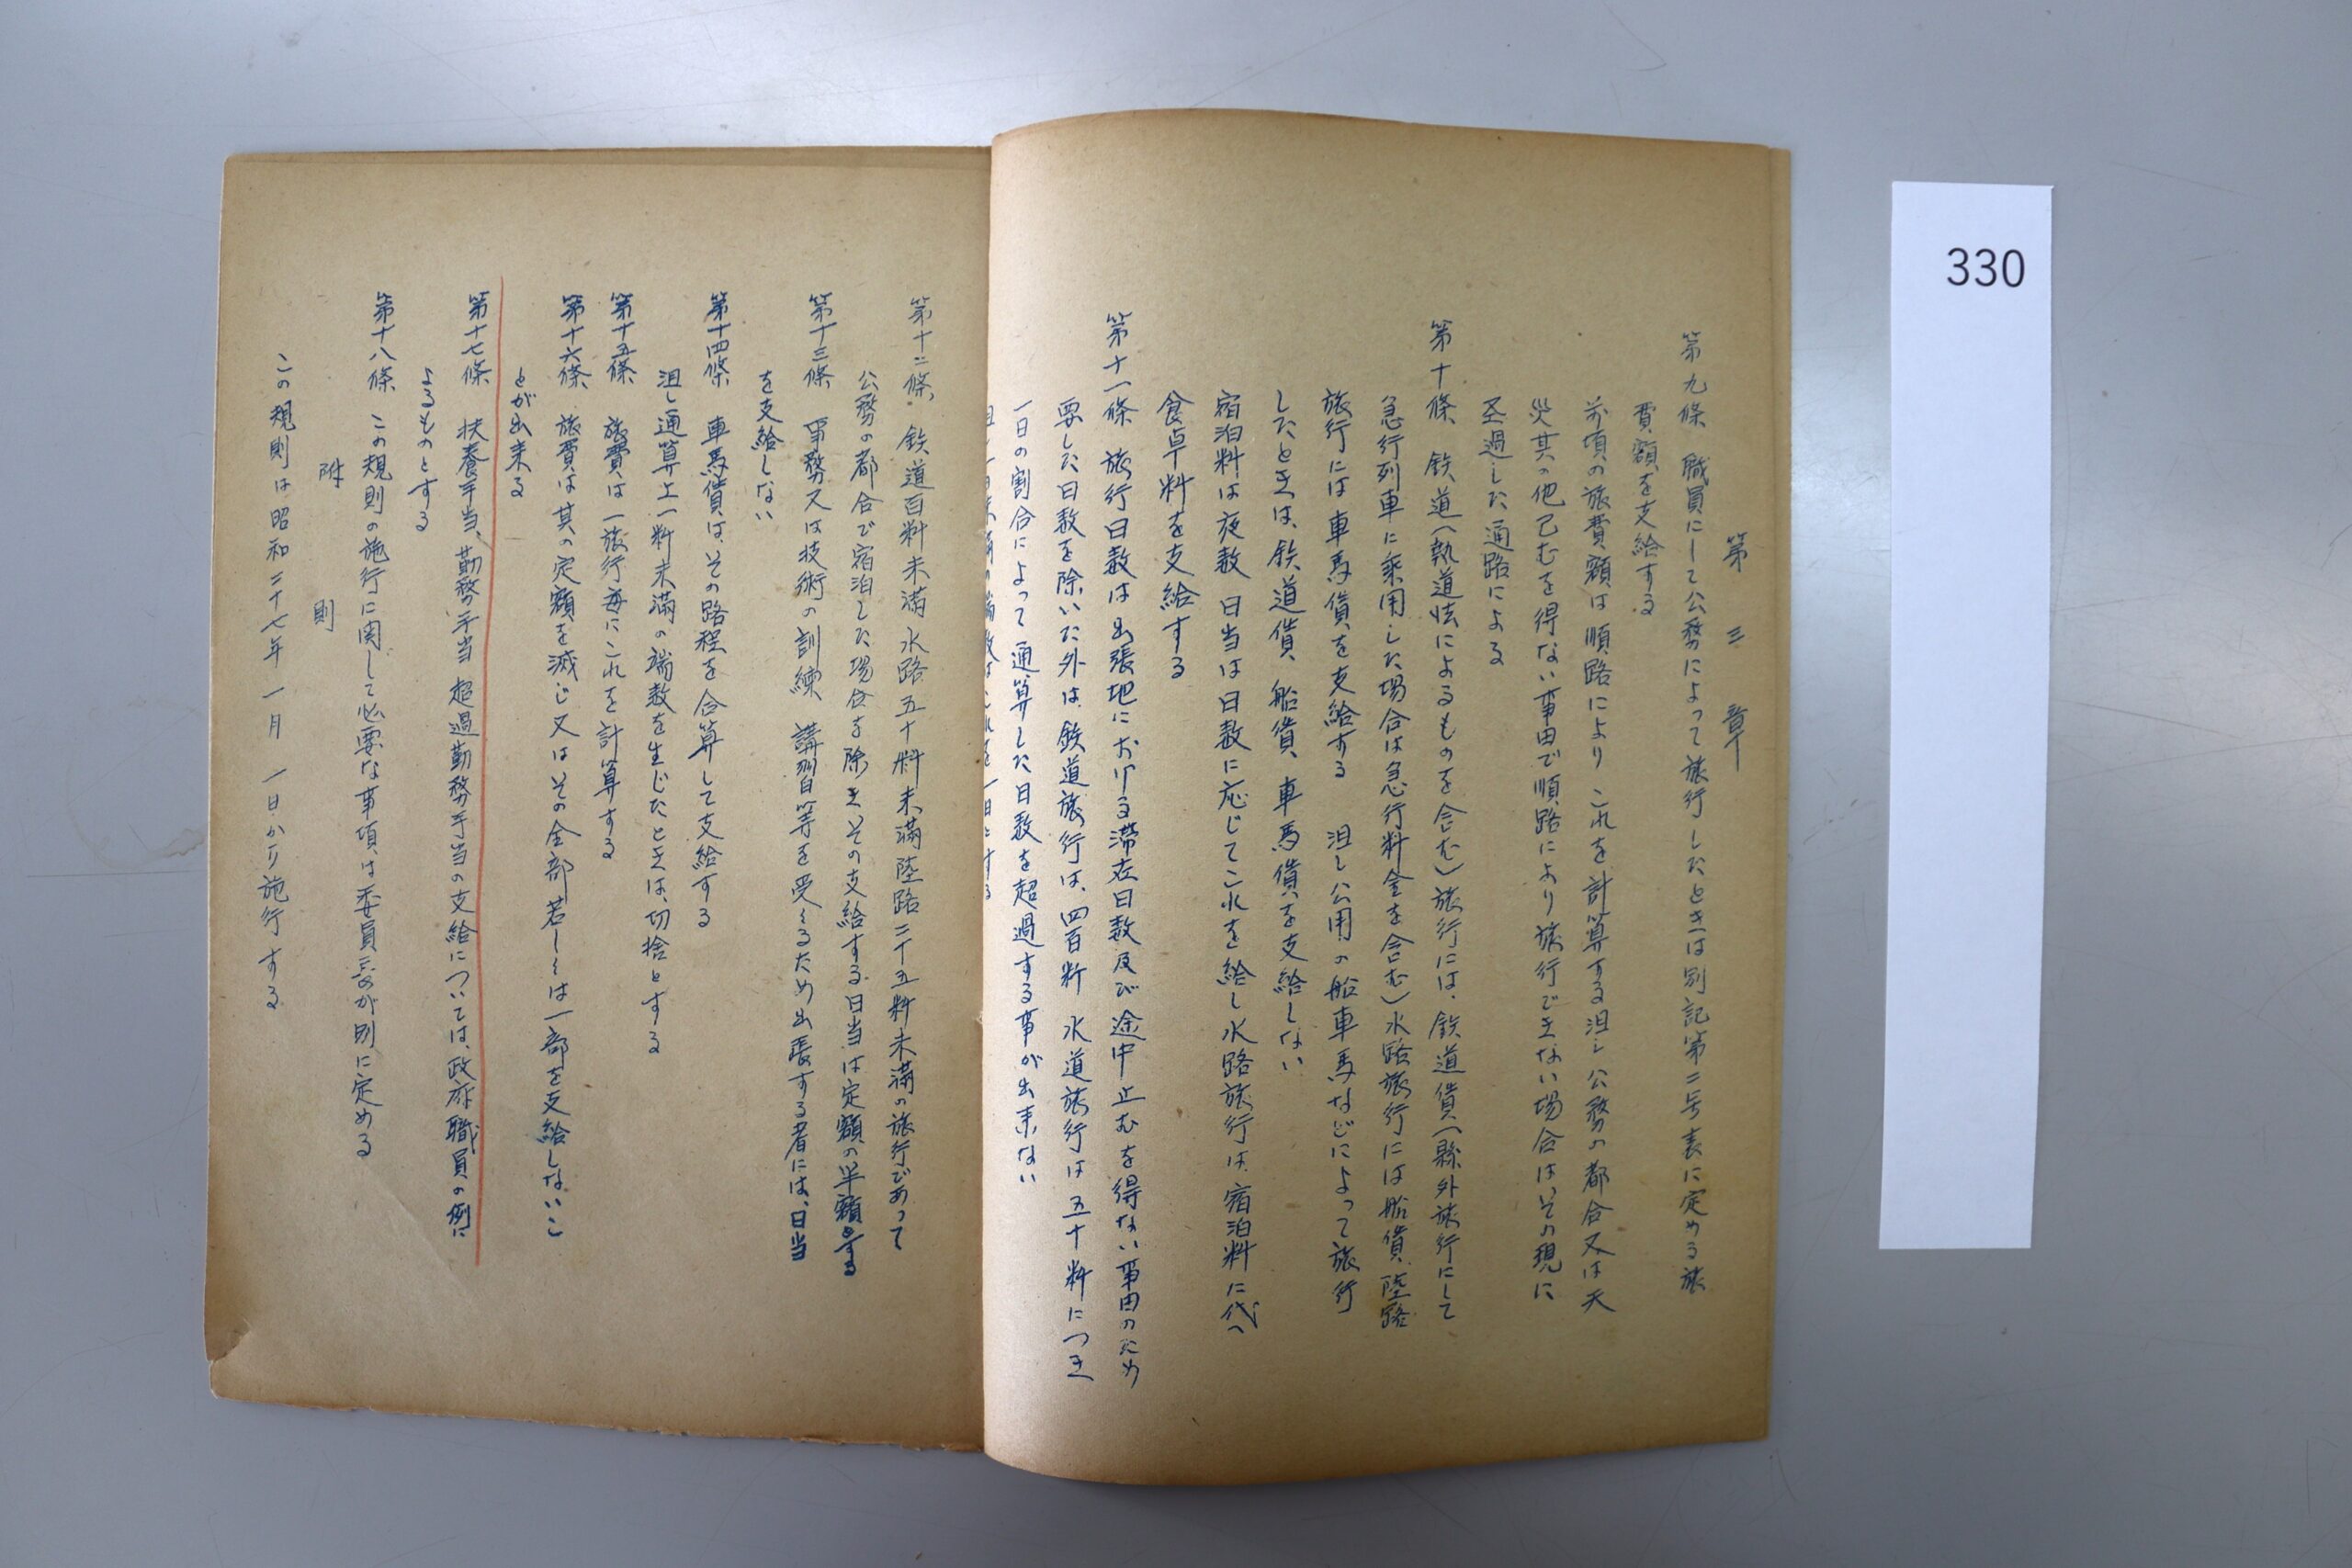 第三章
第九條 職員にして公務によって旅行したときは別記第二号表に定める旅
費額を支給する
前項の旅費額は順路により これを計算する 但し公務の都合又は天
災其の他已むを得ない事由で順路により旅行できない場合は、その現に
経過した通路による
第十條 鉄道(執道怯によるものを含む)旅行には、鉄道賃(縣外旅行にして
急行列車に乗用した場合は急行料金を含む)水路旅行には船賃、陸路
旅行には車馬賃を支給する 但し公用の船車馬などによって旅行
したときは、鉄道賃、船賃、車馬賃を支給しない
宿泊料は夜数 日当は日数に応じてこれを給し水路旅行は、宿泊料に代へ
食卓料を支給する
第十一條 旅行日数は出張地における滞在日数及び途中止むを得ない事由のため
要した日数を除いた外は、鉄道旅行は、四百粁 水道旅行は五十粁につき
一日の割合によって通算した日数を超過する事が出来ない
但し一日未満の端数はこれを一日とする
第十二條 鉄道百粁未満 水路五十粁未満陸路二十五粁未満の旅行であって
公務の都合で宿泊した場合を除き、その支給する日当は定額の半額とする
第十三條 事務又は技術の訓練 講習等を受くるため出張する者には、日当
を支給しない
第十四條 車馬賃は、その路程を合算して支給する
但し通算上一粁未満の端数を生じたときは、切捨とする
第十五條 旅費は一旅行毎にこれを計算する
第十六條 旅費は其の定額を減じ又はその全部若しくは一部を支給しないこ
とが出来る
第十七條 扶養手当、勤務手当 超過勤務手当の支給については、政府職員の例に
よるものとする
第十八條 この規則の施行に関して必要な事項は委員長が別に定める
附 則
この規則は昭和二十七年一月 一日から施行する
330